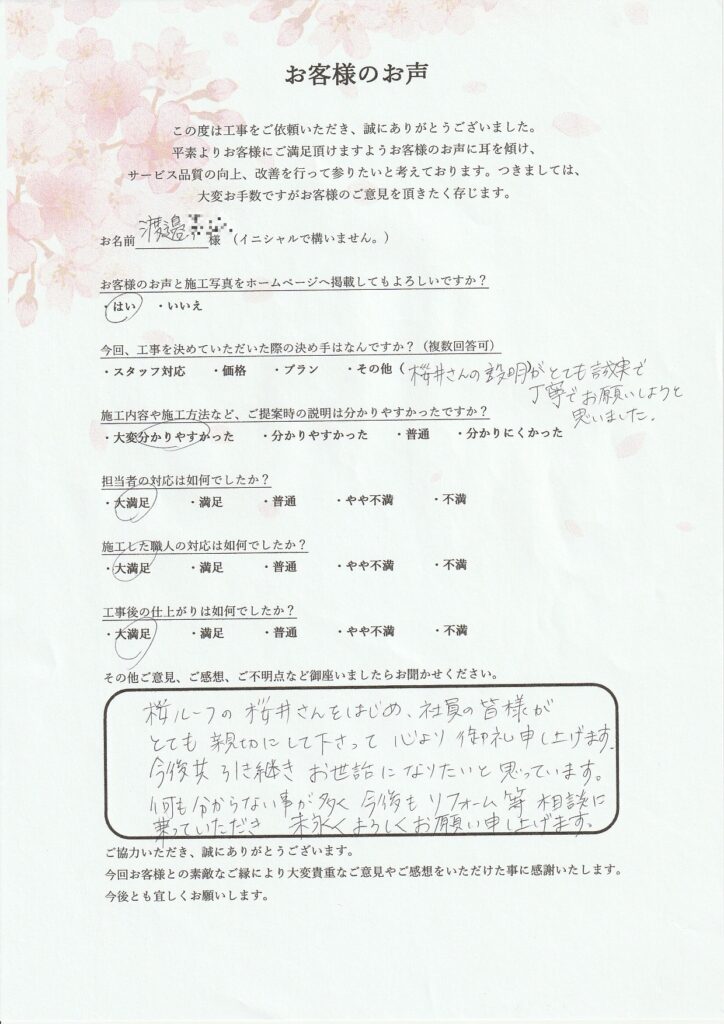 お客様のお声
この度は工事をご依頼いただき、誠にありがとうございました。
平素よりお客様にご満足頂けますようお客様のお声に耳を傾け、
サービス品質の向上、改善を行って参りたいと考えております。つきましては、
大変お手数ですがお客様のご意見を頂きたく存じます。
お名前 渡邉 様 （イニシャルで構いません。）
お客様のお声と施工写真をホームページへ掲載してもよろしいですか？
・はい ・いいえ
今回、工事を決めていただいた際の決め手はなんですか？（複数回答可）
・スタッフ対応 ・価格 ・プラン ・その他（桜井さんの説明がとても誠実で
丁寧でお願いしようと
思いました.
施工内容や施工方法など、ご提案時の説明は分かりやすかったですか？
・大変分かりやすかった ・分かりやすかった ・普通 ・分かりにくかった
担当者の対応は如何でしたか？
・大満足 ・満足 ・普通 ・やや不満 ・不満
施工した職人の対応は如何でしたか？
・大満足 ・満足 ・普通 ・やや不満 ・不満
工事後の仕上がりは如何でしたか？
・大満足 ・満足 ・普通 ・やや不満 ・不満
その他ご意見、ご感想、ご不明点など御座いましたらお聞かせください。
桜ルーフの桜井さんをはじめ、社員の皆様が
とても親切にして下さって 心より御礼申し上げます.
今後共引き継き お世話になりたいと思っています。
何も分からない事が多く 今後も リフォーム等 相談に
乗っていただき 末永くよろしくお願い申し上げます。
ご協力いただき、誠にありがとうございます。
今回お客様との素敵なご縁により大変貴重なご意見やご感想をいただけた事に感謝いたします。
今後とも宜しくお願いします。